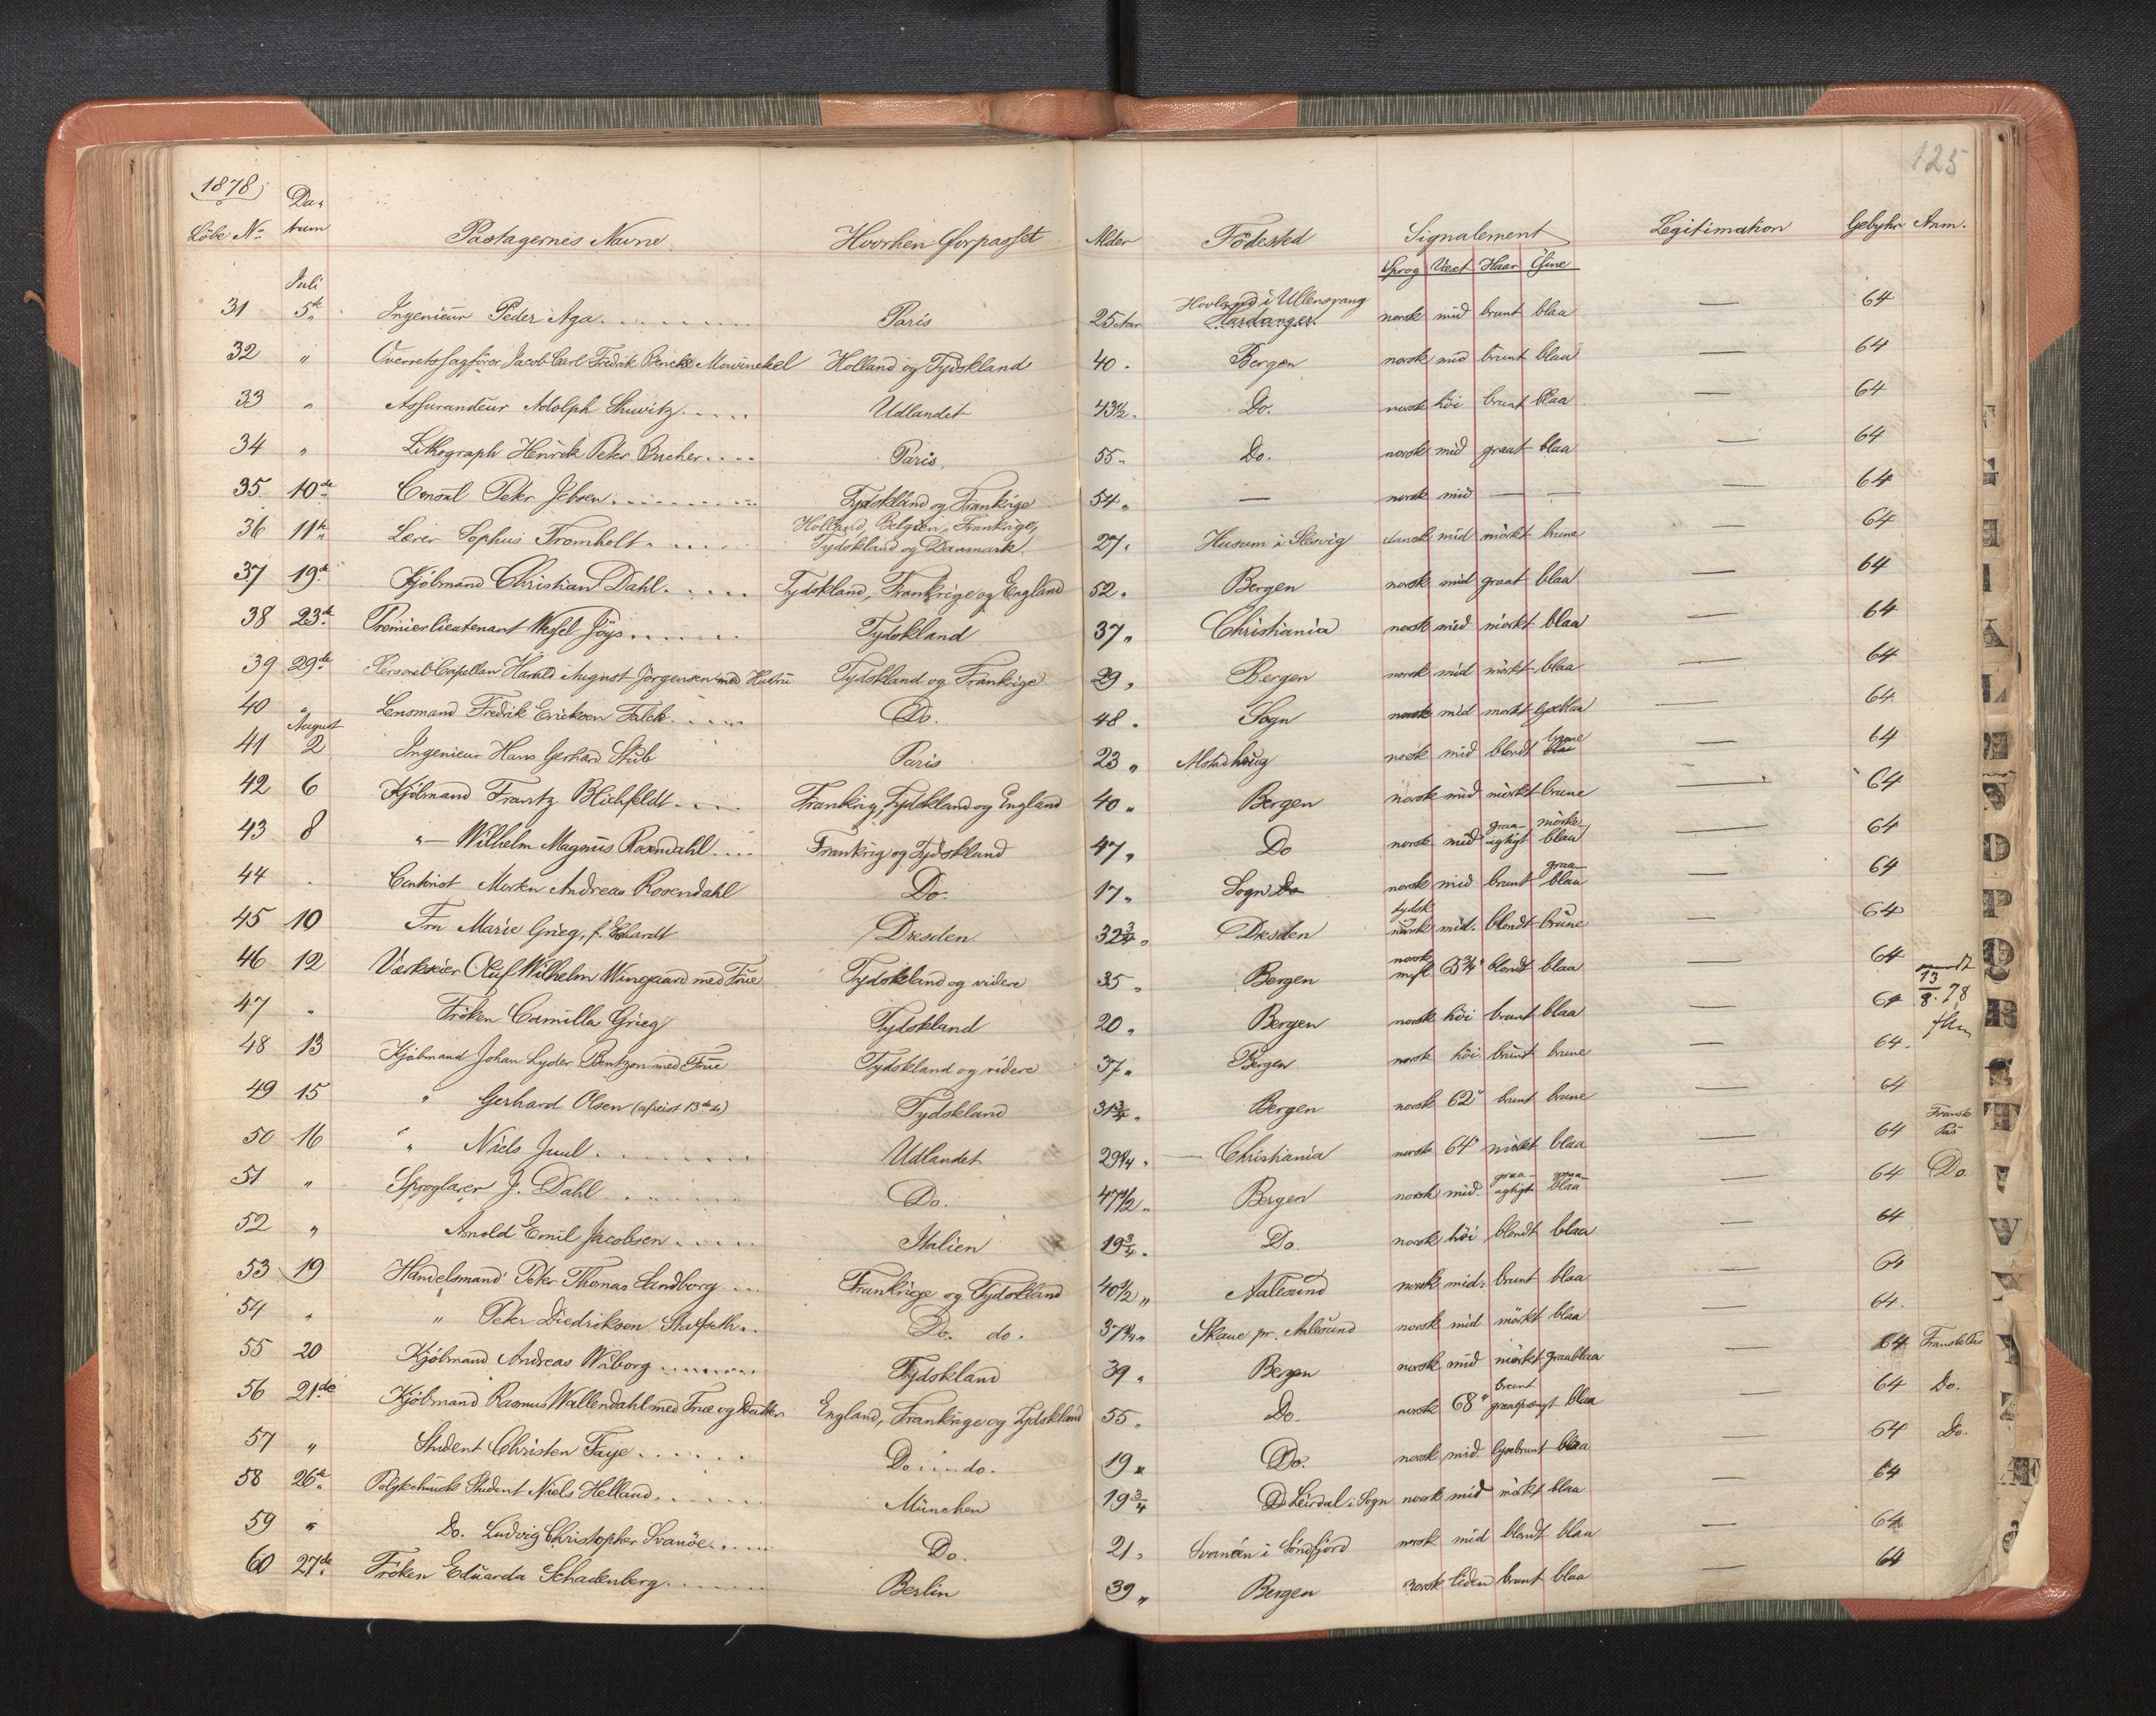 1878 125
Da-
Löbe No. tum Pastagernes Navne Hvorhen Forpasset Alder Födested Signalement Legitimation Gebyhr Anm.
Sprog Væxt Haar Öine
Juli
31 5te Ingenieur Peder Aga Paris 25 Aar Hovland i Ullensvang Hardanger norsk mid brunt blaa — 64
32 " Overretssagförer Jacob Carl Fredrik Bencke Mowinckel Holland og Tydskland 40 Bergen norsk mid brunt blaa — 64
33 " Assurandeur Adolph Do. Udlandet 43 1/2 Do. norsk höi brunt blaa — 64
34 " Lithograph Henrik Peter Paris 55 Do. norsk mid graat blaa — 64
35 10de Consul Peter Jebsen Tydskland og Frankrige 54 — norsk mid — — — 64
36 11te Lærer Sophus Tromholt Holland, Belgien, Frankrige, Tydskland og Danmark 27 Husum i Slesvig dansk mid mörkt brune — 64
37 19de Kjöbmand Christian Dahl Tydskland, Frankrige og England 52 Bergen norsk mid graat blaa — 64
38 23de Premierlieutenant Wessel Jöys Tydskland 37 Christiania norsk mid mörkt blaa — 64
39 29de Personel Capellan Harald August Jörgensen med Hustru Tydskland og Frankrige 29 Bergen norsk mid mörkt blaa — 64
40 " Lensmand Fredrik Ericksen Falch Do. 48 Sogn norsk mid mörkt lyseblaa — 64
August
41 2 Ingenieur Hans Gerhard Stub Paris 23 Alstadhaug norsk mid blondt brune blaa — 64
42 6 Kjöbmand Frantz Blichfeldt Frankrig, Tydskland og England 40 Bergen norsk mid mörkt brune — 64
43 8 "— Wilhelm Magnus Rosendahl Frankrig og Tydskland 47 Do norsk mid graa-agtigt mörke blaa — 64
44 . Contorist Morten Andreas Rosendahl Do. 17 Sogn Do norsk mid brunt graa blaa — 64
45 10 Fru Marie Grieg, f. Dresden 32 3/4 Dresden tydsk norsk mid. blondt brune — 64
46 12 Værkseier Oluf Wilhelm Wingaard med Frue Tydskland og videre 35 Bergen norsk 65 3/4" blondt blaa — 64 13/8.78
47 " Fröken Camilla Grieg Tydskland 20 Bergen norsk höi brunt blaa — 64
48 13 Kjöbmand Johan Lyder Bentzon med Frue Tydskland og videre 37 Bergen norsk höi brunt brune — 64
49 15 " Gerhard Olsen (afreist 13de ds) Tydskland 31 3/4 Bergen norsk 62" brunt brune — 64
50 16 " Niels Juul Udlandet 29 1/4 — Christiania norsk 64" mörkt blaa — 64 Fransk Pas
51 " Sproglærer J. Dahl Do. 47 1/2 Bergen norsk mid. graa-agtigt graa-blaa — 64 Do
52 " Arnold Emil Jacobsen Italien 19 3/4 Do. norsk höi blondt blaa — 64
53 19 Handelsmand Peter Thomas Sandborg Frankrige og Tydskland 40 1/2 Aalesund norsk mid: brunt blaa — 64
54 " " Peter Diedriksen Do. do. Skaue pr. Aalesund norsk mid mörkt blaa — 64
55 20 Kjöbmand Andreas Wiborg Tydskland 39 Bergen norsk mid mörkt graablaa — 64 Fransk Pas
56 21de Kjöbmand Rasmus Wallendahl med Frue og Datter England, Frankrige og Tydskland 55 Do. norsk 68" brunt graasprængt blaa — 64 Do.
57 " Student Christen Faye Do. do. 19 Do. norsk mid lysebrunt blaa — 64 Do.
58 26de Polytechnisk Student Niels Helland München 19 3/4 Leirdal i Sogn norsk mid mörkt blaa — 64
59 " Do. Ludvig Christopher Svanöe Do. 21 Svanöen i Söndfjord norsk mid blondt blaa — 64
60 27de Fröken Eduarda Schadenberg Berlin 39 Bergen norsk liden brunt blaa — 64